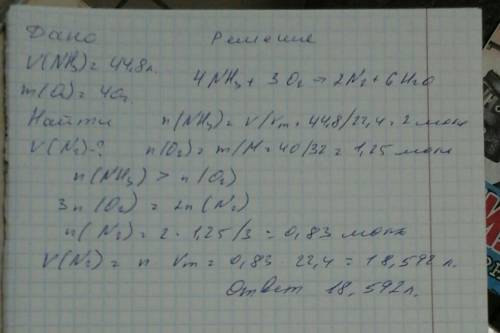 Дано Решение
V(NH3) = 44,8 л.
4NH3 + 3O2 → 2N2 + 6H2O
m(O2) = 40г
Найти n(NH3) = V/Vm = 44,8/22,4 = 2 моль
V(N2)-? n(O2) = m/M = 40/32 = 1,25 моль
n(NH3) > n(O2)
3n(O2) = 2n(N2)
n(N2) = 2 · 1,25/3 = 0,83 моль
V(N2) = n · Vm = 0,83 · 22,4 = 18,592 л.
Ответ 18,592 л.